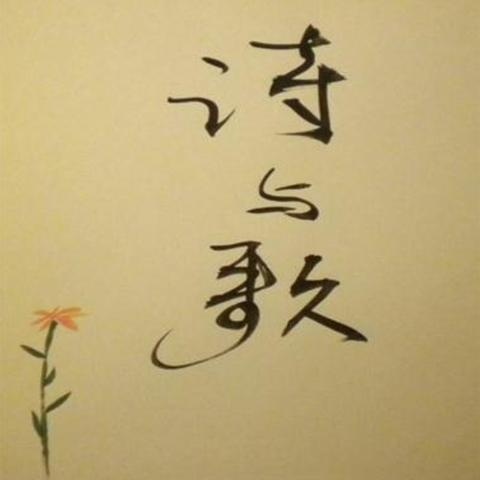 诗
与
歌